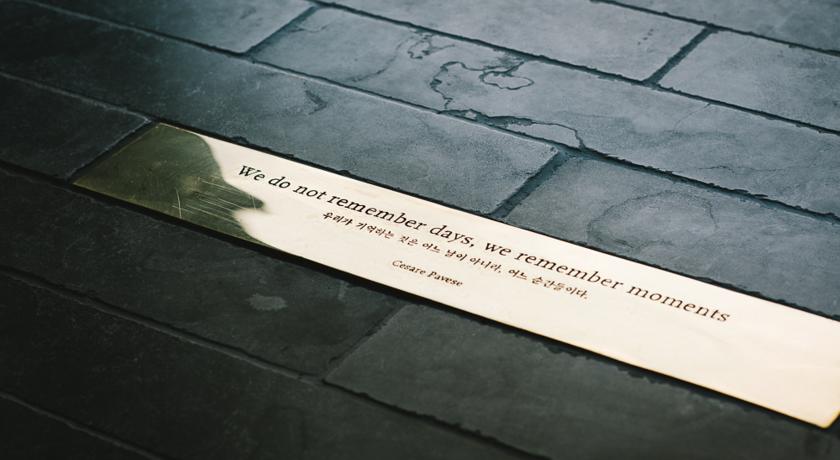 We do not remember days, we remember moments
우리가 기억하는 것은 어느 날이 아니라, 어느 순간들이다.
Cesare Pavese